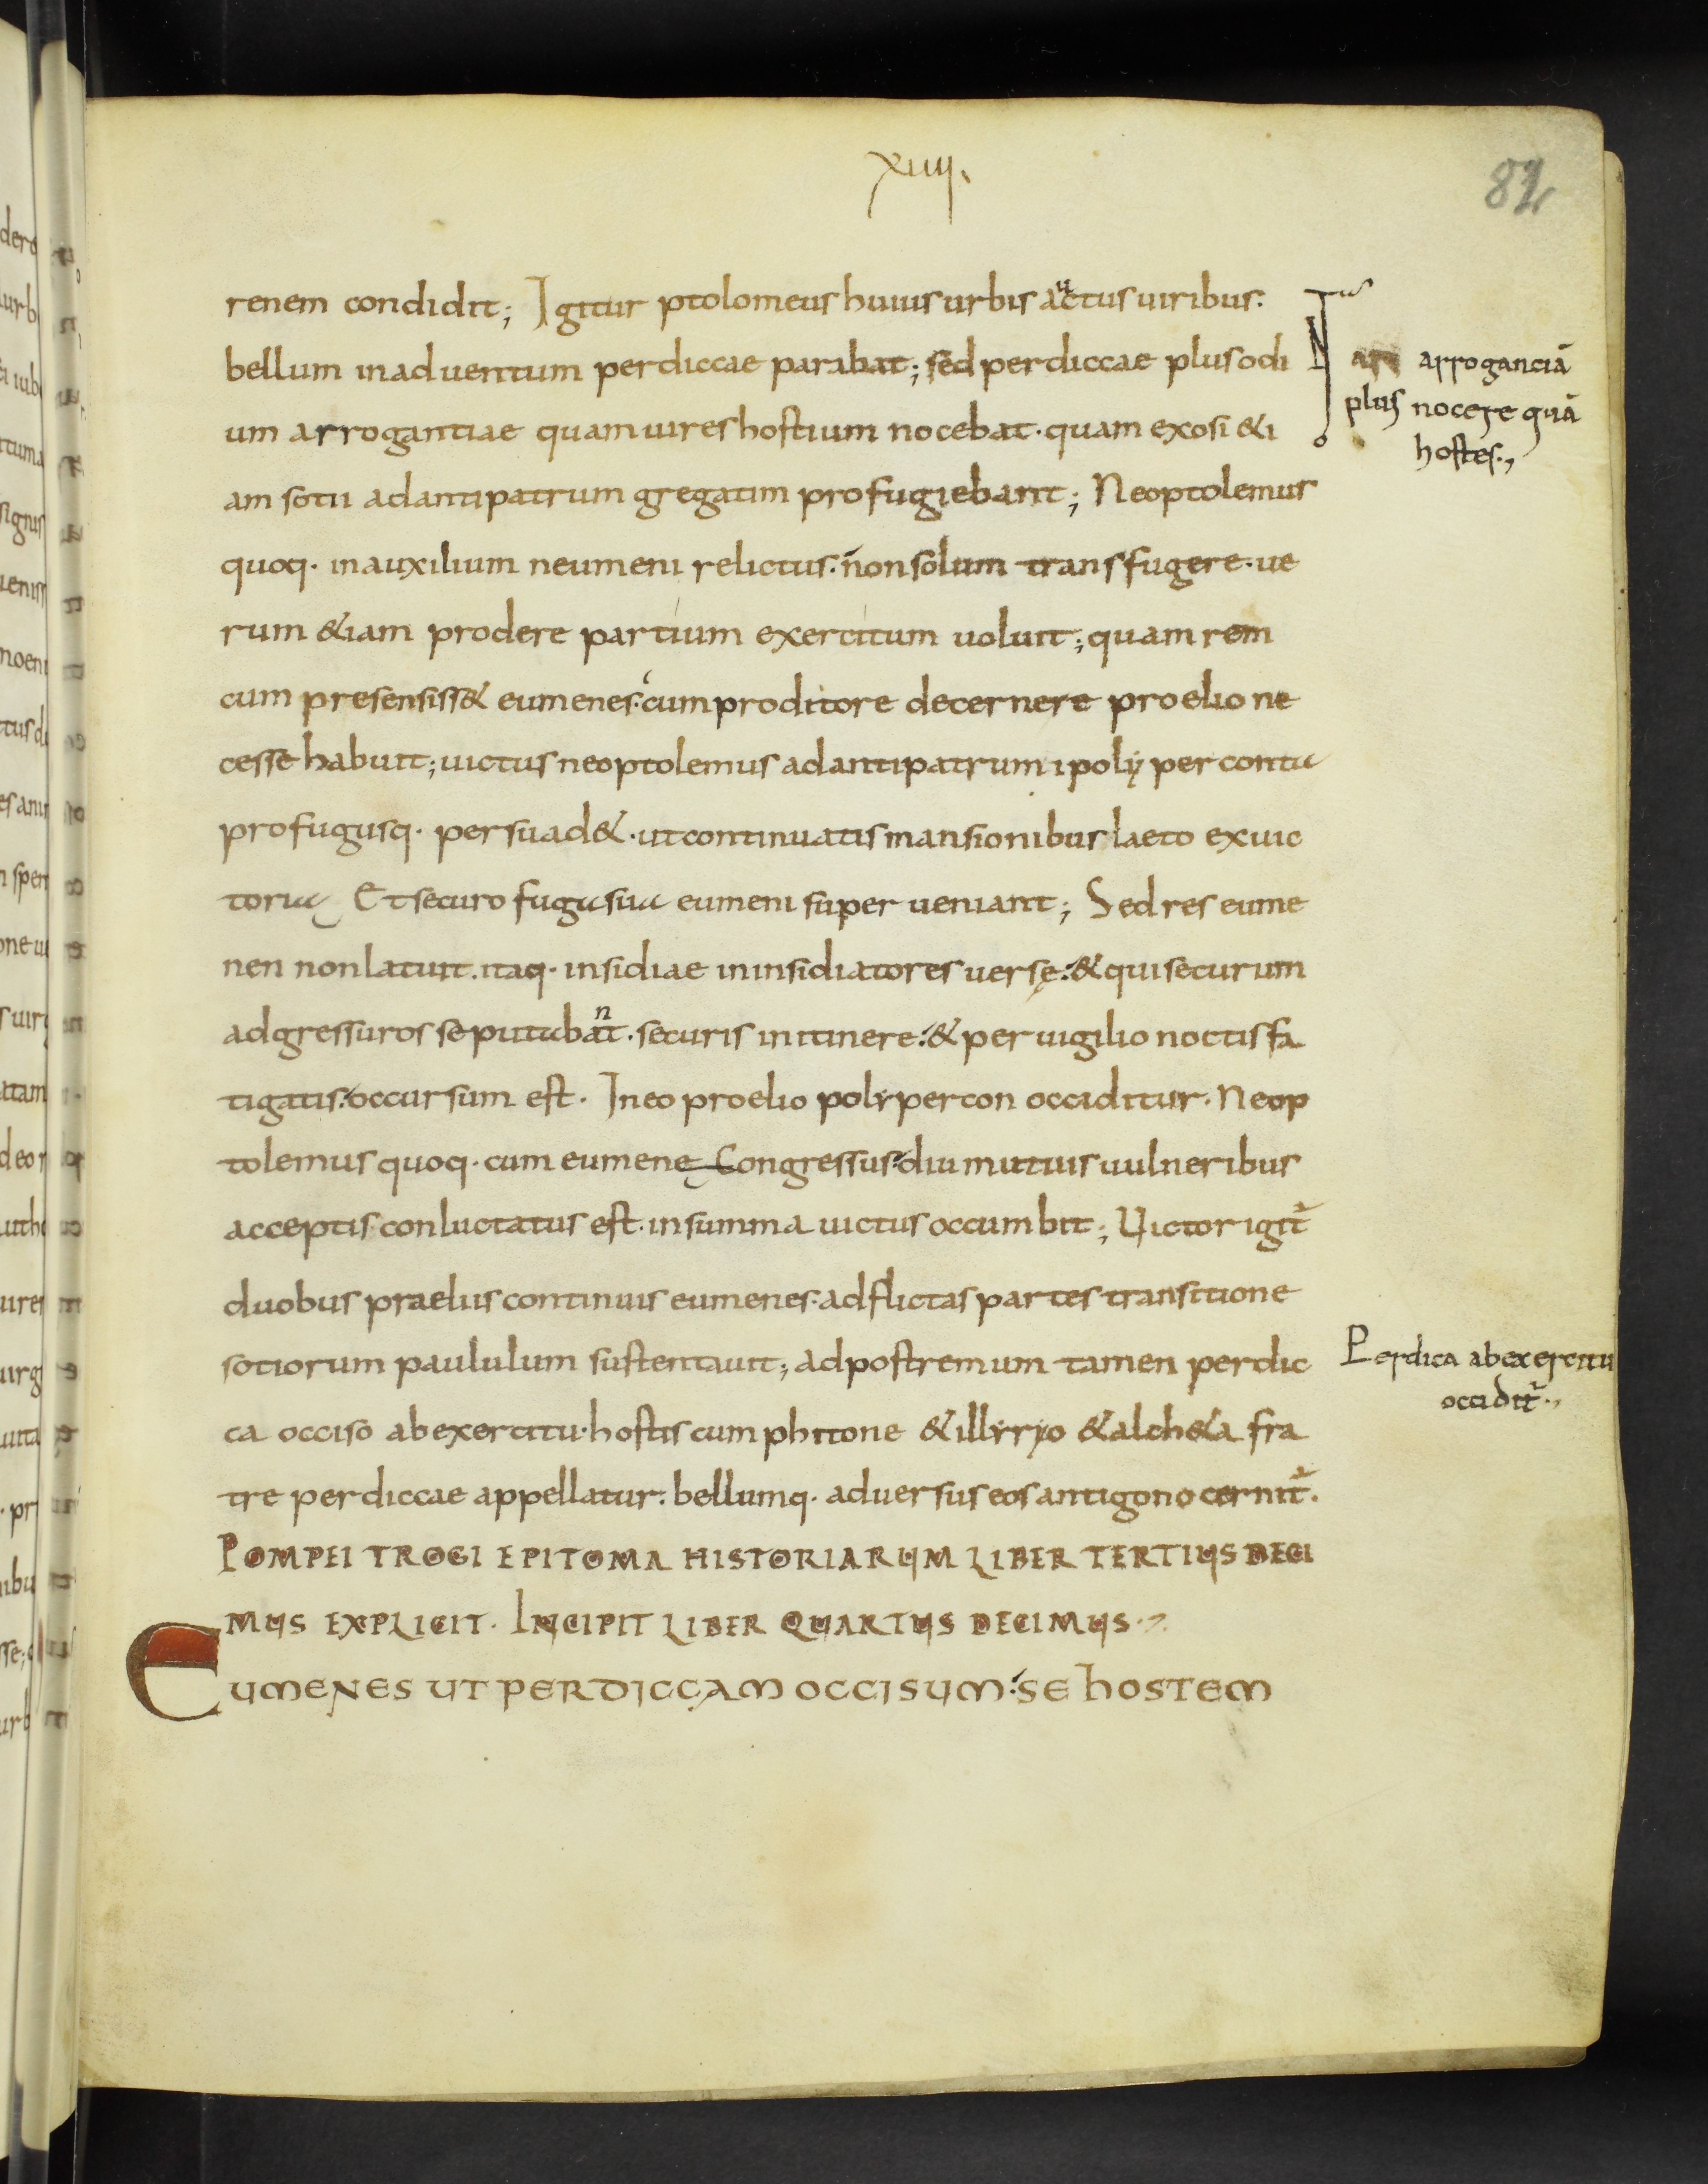 xiiii.
82
renem condidit; Igitur ptolomeus huius urbis auctus uiribus:
bellum inaduentum perdiccae parabat; sed perdiccae plus odi
um arrogantiae quam uires hostium nocebat. quam exosi &i
am sotii adantipatrum gregatim profugiebant; Neoptolemus
quoq. inauxilium neumeni relictus. non solum transfugere. ue
rum &iam prodere partium exercitum uoluit; quam rem
cum presensiss& eumenes. cum proditore decernere proelio ne
cesse habuit; uictus neoptolemus adantipatrum ipolÿ per conta
profugusq. persuad&. ut continuatis mansionibus laeto exuic
toria Et securo fuga sua eumeni super ueniant; Sed res eume
nen non latuit. itaq. insidiae ininsidiatores uersę: & qui securum
adgressuros se putabant. securis initinere: & peruigilio noctis fa
tigatis: occursum est. Ineo proelio polypercon occiditur. Neop
tolemus quoq. cum eumenę Congressus: diu mutuis uulneribus
acceptis conluctatus est. insumma uictus occumbit; Uictor igit̃
duobus praeliis continuis eumenes. adflictas partes transitione
sotiorum paululum sustentauit; adpostremum tamen perdic
ca occiso abexercitu. hostis cum phitone & illyrio & alch&a fra
tre perdiccae appellatur: bellumq. aduersus eos antigono cernit̃.
POMPEI TROGI EPITOMA HISTORIARUM LIBER TERTIUS DECI
MUS EXPLICIT. INCIPIT LIBER QUARTUS DECIMUS.
EUMENES UT PERDICCAM OCCISUM: SE HOSTEM
arroganciā
plus nocere quā
hostes.,
Perdica abexercitu
occidit̃.,